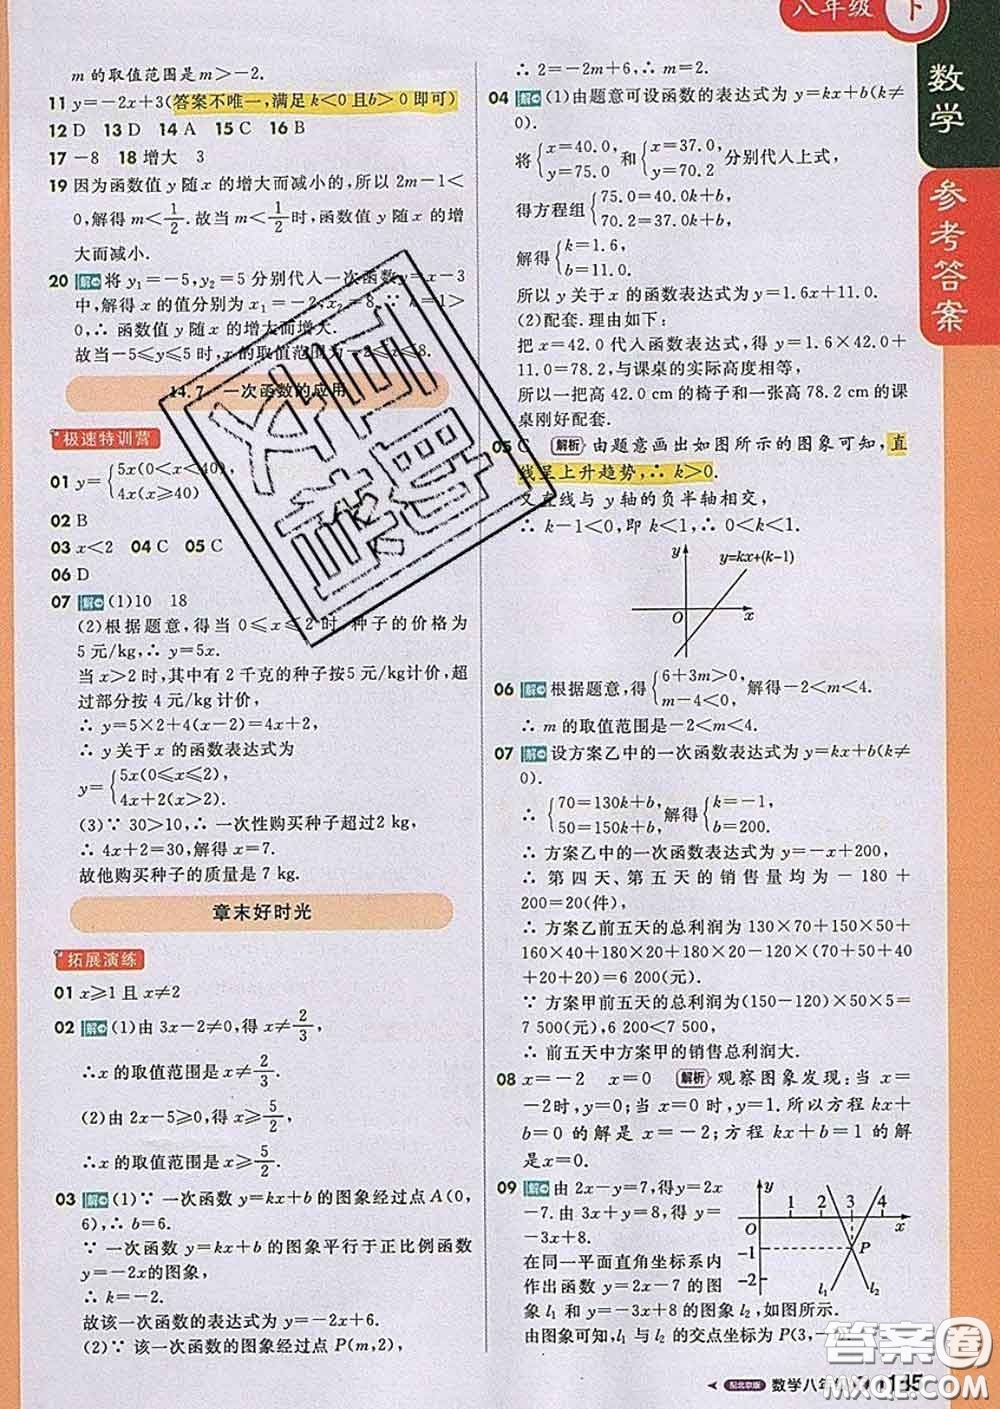 m 的取值范围是 m>-2.
11 y=-2x+3(答案不唯一,满足 k<0 且 b>0 即可)
12 D 13 D 14 A 15 C 16 B
17 -8 18 增大 3
19 因为函数值 y 随 x 的增大而减小的,所以 2m-1<
0,解得 m<1/2.故当 m<1/2时,函数值 y 随 x 的增
大而减小.
20 解 将 y₁=-5,y₂=5 分别代入一次函数 y=x-3
中,解得 x 的值分别为 x₁=-2,x₂=8.∵ k=1>
0,∴ 函数值 y 随 x 的增大而增大.
故当-5≤y≤5 时,x 的取值范围为-2≤x≤8.
14.7 一次函数的应用
极速特训营
01 y={5x(0<x<40),
4x(x≥40)
02 B
03 x<2 04 C 05 C
06 D
07 解 (1)10 18
(2)根据题意,得当 0≤x≤2 时,种子的价格为
5 元/kg,∴ y=5x.
当 x>2 时,其中有 2 千克的种子按5 元/kg计价,超
过部分按 4 元/kg 计价,
∴ y=5×2+4(x-2)=4x+2,
∴ y 关于 x 的函数表达式为
y={5x(0≤x≤2),
4x+2(x>2).
(3)∵ 30>10,∴ 一次性购买种子超过2 kg,
∴ 4x+2=30,解得 x=7.
故他购买种子的质量是 7 kg.
章末好时光
拓展演练
01 x≥1 且 x≠2
02 解 (1)由 3x-2≠0,得 x≠2/3,
∴x 的取值范围是 x≠2/3.
(2)由 2x-5≥0,得 x≥5/2,
∴x 的取值范围是 x≥5/2.
03 解 (1)∵ 一次函数 y=kx+b 的图象经过点 A(0,
6),∴ b=6.
∵ 一次函数 y=kx+b 的图象平行于正比例函数
y=-2x的图象,
∴ k=-2.
故该一次函数的表达式为 y=-2x+6.
(2)∵ 该一次函数的图象经过点 P(m,2),
∴ 2=-2m+6,∴ m=2.
04 解 (1)由题意可设函数的表达式为 y=kx+b(k≠
0).
将{x=40.0, 和{x=37.0, 分别代入上式,
y=75.0 y=70.2
得方程组{75.0=40.0k+b,
70.2=37.0k+b,
解得{k=1.6,
b=11.0.
所以 y 关于 x 的函数表达式为 y=1.6x+11.0.
(2)配套.理由如下:
把 x=42.0 代入函数表达式,得 y=1.6×42.0+
11.0=78.2,与课桌的实际高度相等,
所以一把高 42.0 cm 的椅子和一张高 78.2 cm 的课
桌刚好配套.
05 C 解析 由题意画出如图所示的图象可知,直
线呈上升趋势,∴ k>0.
又直线与 y轴的负半轴相交,
∴ k-1<0,即 k<1,∴ 0<k<1.
y y=kx+(k-1)
O x
06 解 根据题意,得{6+3m>0, 解得-2<m<4.
m-4<0,
∴ m 的取值范围是-2<m<4.
07 解 设方案乙中的一次函数表达式为 y=kx+b(k≠
0).
∴ {70=130k+b, 解得{k=-1,
50=150k+b, b=200.
∴ 方案乙中的一次函数表达式为 y=-x+200,
∴ 第四天、第五天的销售量均为-180+
200=20(件),
∴ 方案乙前五天的总利润为 130×70+150×50+
160×40+180×20+180×20-120×(70+50+
40+20+20)=6 200(元).
∵ 方案甲前五天的总利润为(150-120)×50×5=
7 500(元),6 200<7 500,
∴ 前五天中方案甲的销售总利润大.
08 x=-2 x=0 解析 观察图象发现:当 x=
-2时,y=0;当 x=0 时,y=1.所以方程 kx+
b=0 的解是 x=-2;方程 kx+b=1 的解
是 x=0.
09 解 由 2x-y=7,得 y=2x
-7.由 3x+y=8,得 y=
-3x+8.
在同一平面直角坐标系内
作出函数 y=2x-7 的图
象 l₁ 和 y=-3x+8 的图象 l₂,如图所示.
由图象可知,l₁ 与 l₂ 的交点坐标为 P(3,-
y
1 2 3 4
O x
-1 P
-2
l₁ l₂
八年级 下
数学
参考答案
配北京版 数学八年 135
答案圈